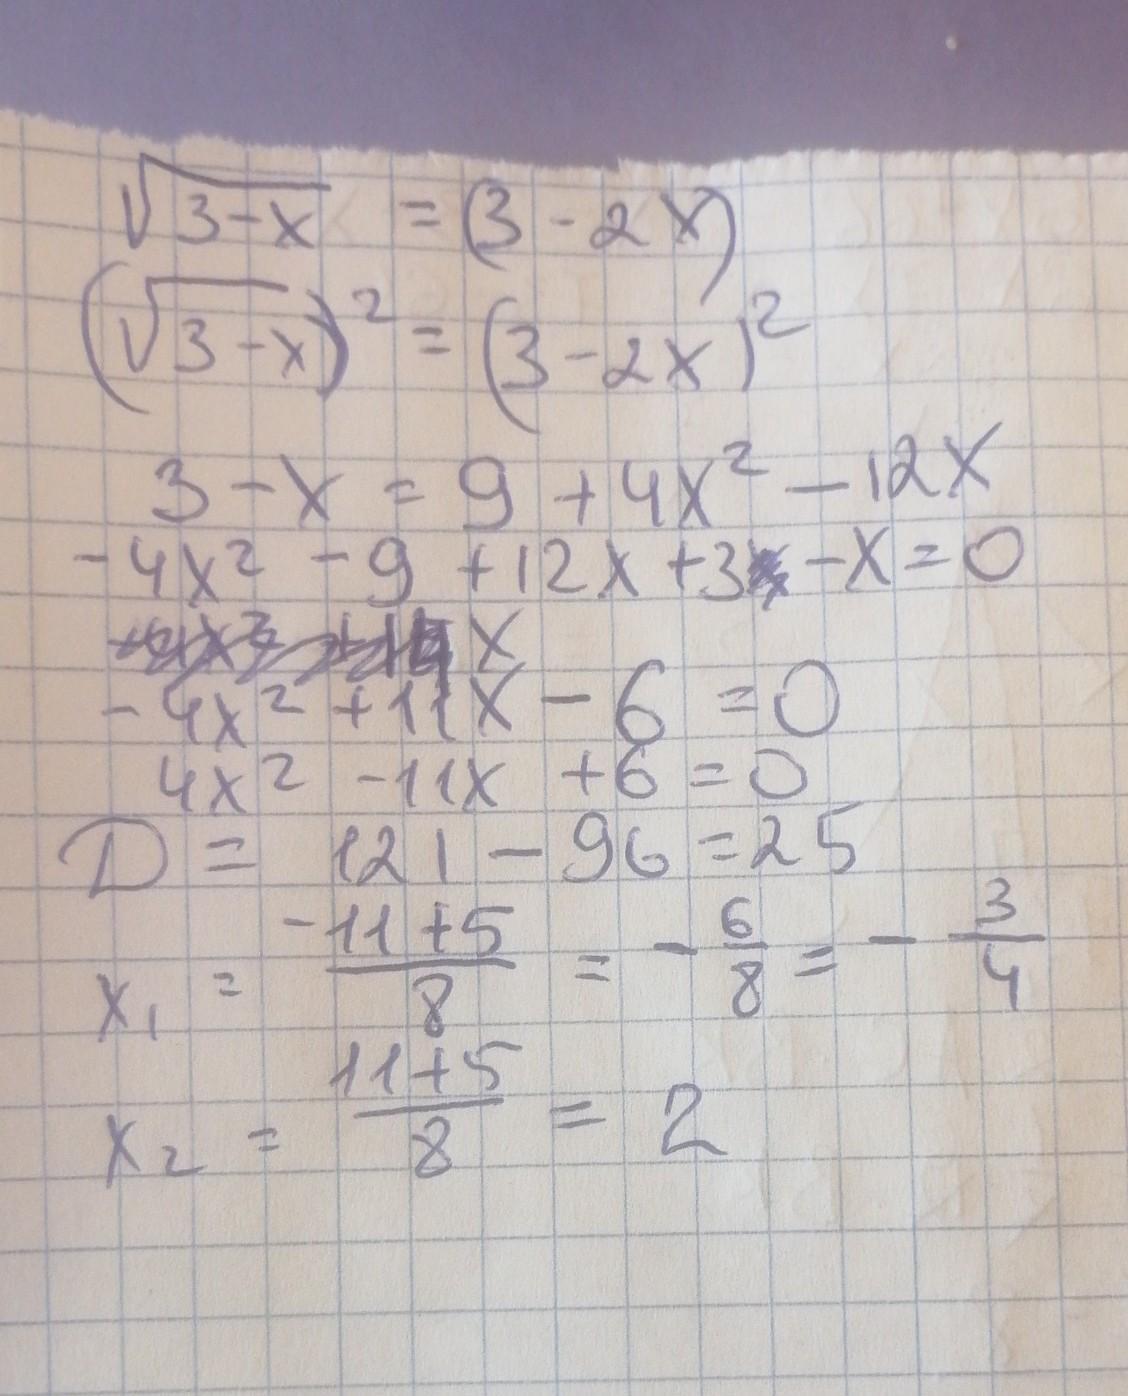 √3-x = (3-2x)
(√3-x)² = (3-2x)²
3-x = 9+4x²-12x
-4x²-9+12x+3-x=0
x
-4x²+11x-6=0
4x²-11x+6=0
D = 121-96=25
x₁ = -11+5/8 = -6/8 = -3/4
x₂ = 11+5/8 = 2